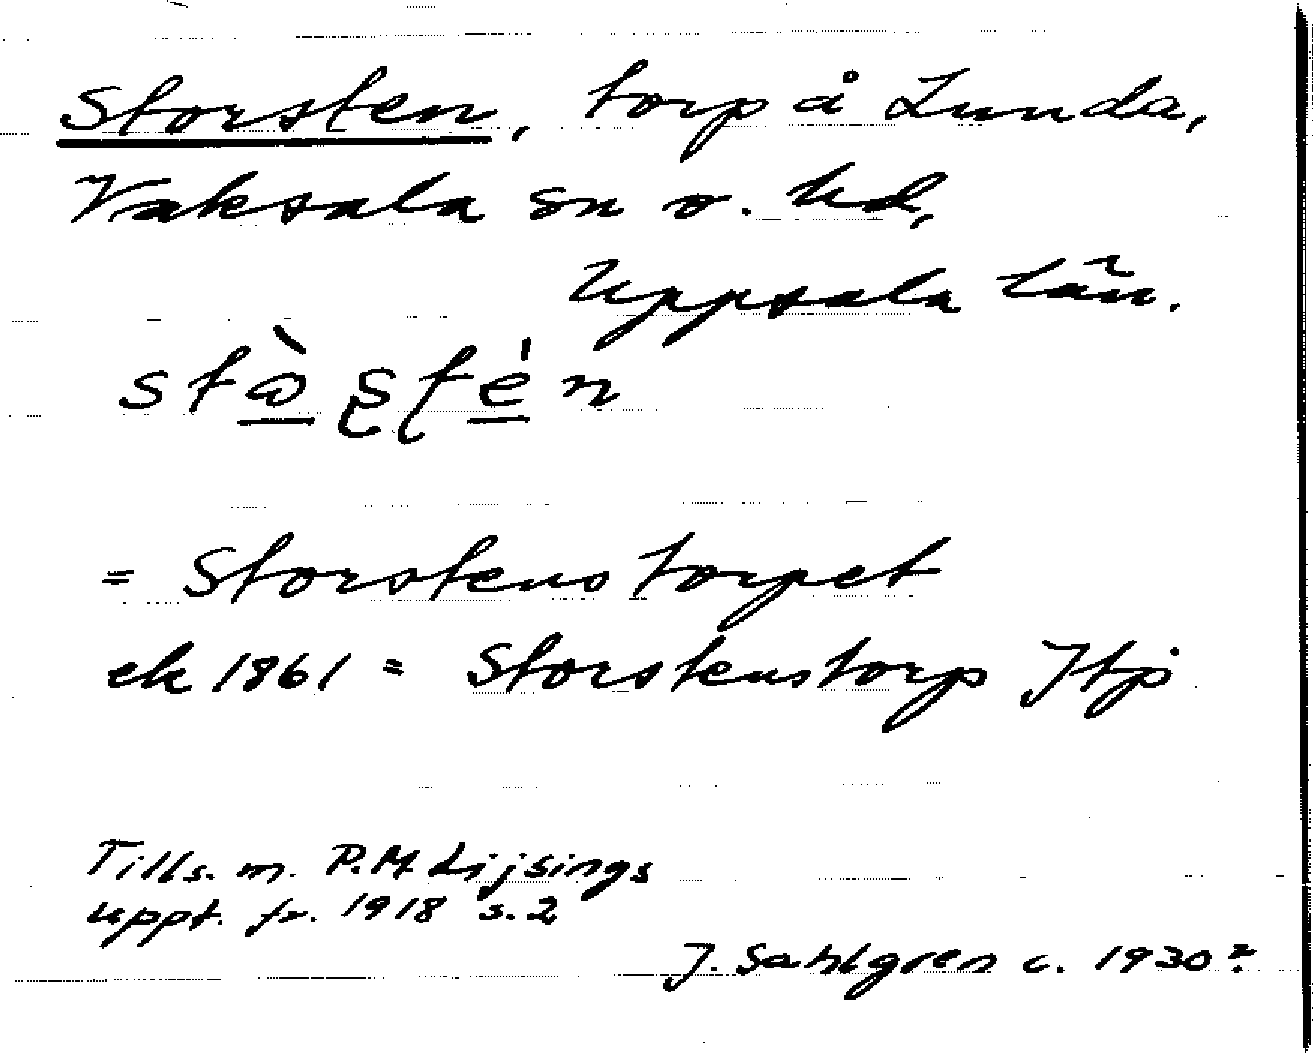 Storsten, torp å Lunda,
Vaksala sn o. hd,
Uppsala län.
= Storstenstorpet
ek 1861 = Storstenstorp Jtp
Tills. m. P.M. Lijsings
uppt. fr. 1918 s. 2
J. Sahlgren c. 1930?